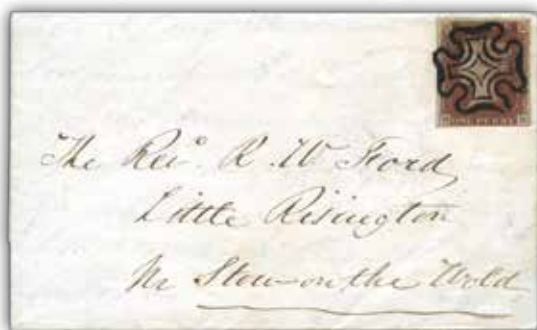 ONE PENNY
The Revd. R. W. Ford
Little Risington
Nr Stow-on the Wold